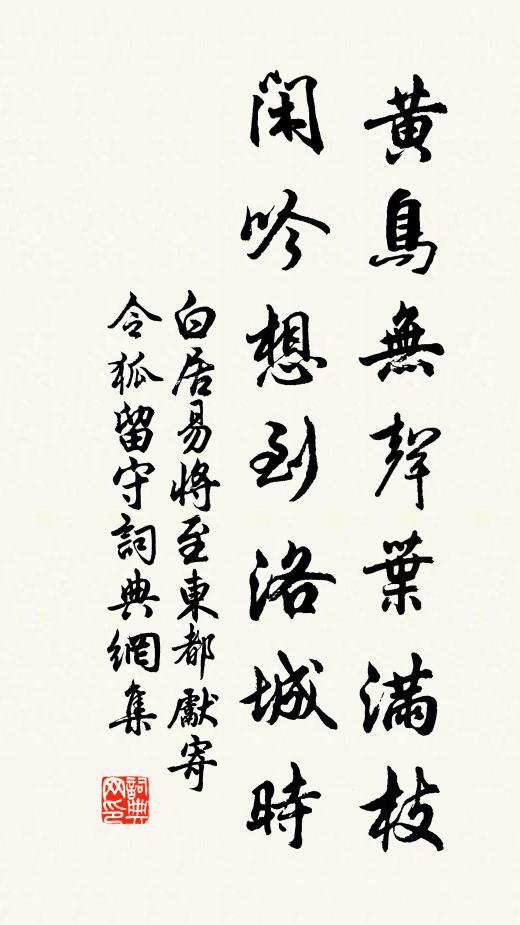 黄鳥無聲葉滿枝
閑吟想到洛城時
白居易將至東都獻寄
令狐留守詞典網集
詞典網印